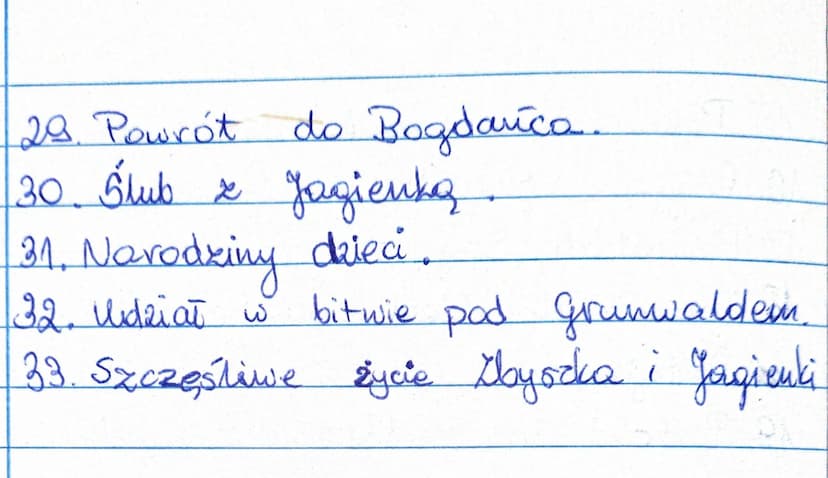 29. Powrót do Bogdańca.
30. Ślub z Jagienką.
31. Narodziny dzieci.
32. Udział w bitwie pod Grunwaldem.
33. Szczęśliwe życie Zbyszka i Jagienki